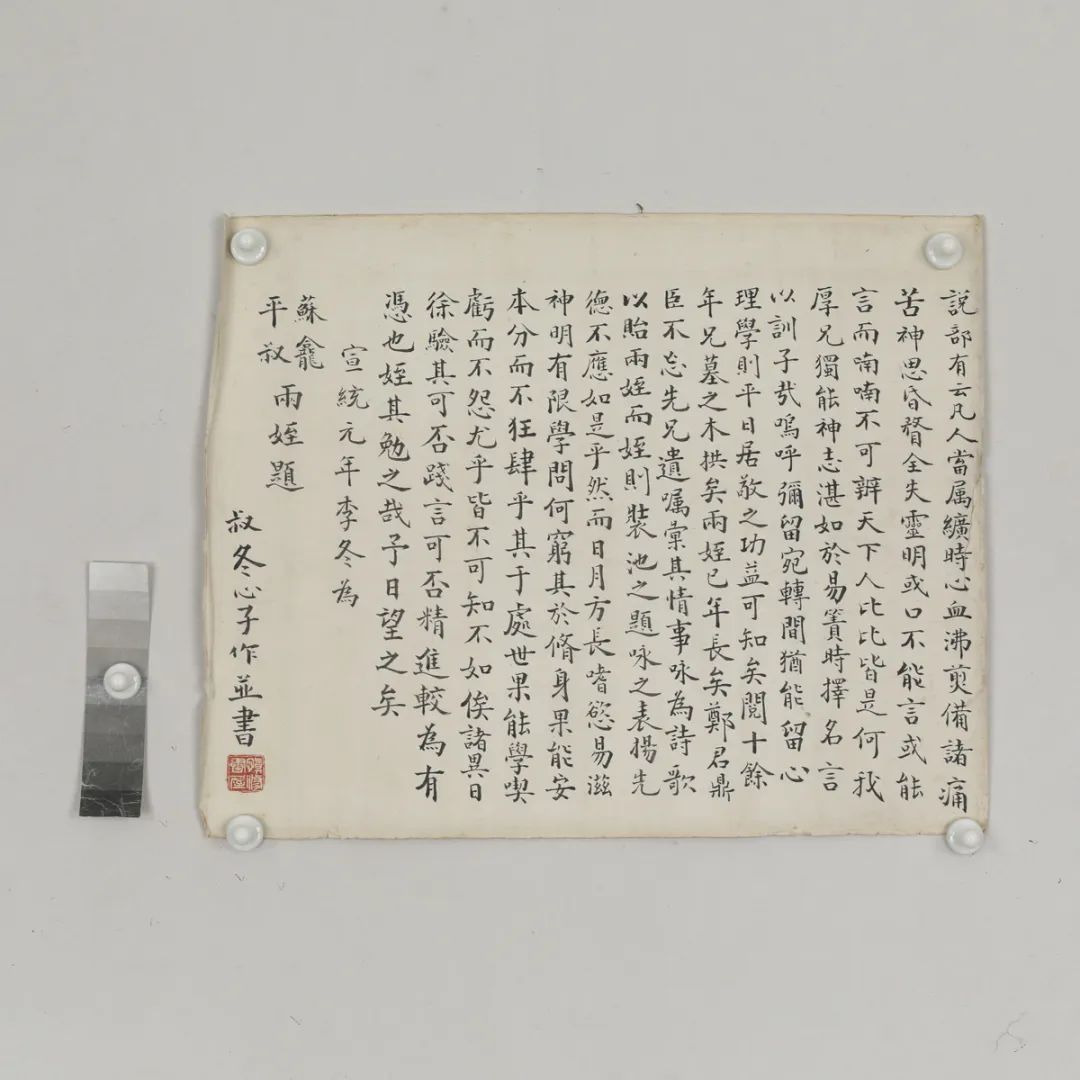 說部有云凡人當属纊時心血沸煎備諸痛
苦神思昏瞀全失靈明或口不能言或能
言而喃喃不可辨天下人比比皆是何我
厚兄獨能神志湛如於易簀時擇名言
以訓子哉嗚呼彌留宛轉間猶能留心
理學則平日居敬之功益可知矣閱十餘
年兄墓之木拱矣兩姪已年長矣鄭君鼎
臣不忘先兄遺嘱彙其情事咏為詩歌
以貽兩姪而姪則裝池之題咏之表揚先
德不應如是乎然而日月方長嗜慾易滋
神明有限學問何窮其於脩身果能安
本分而不狂肆乎其于處世果能學喫
虧而不怨尤乎皆不可知不如俟諸異日
徐驗其可否踐言可否精進較為有
憑也姪其勉之哉予日望之矣
宣統元年李冬為
蘇龕
平叔兩姪題
叔冬心子作並書